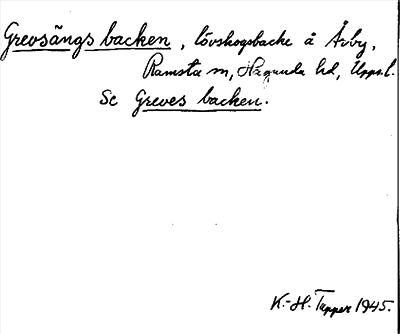 Grevsängs backen, lövskogsbacke å Årby,
Ramsta sn, Hagunda hd, Upps.l.
Se Greves backen.
K.-H. Tapper 1945.